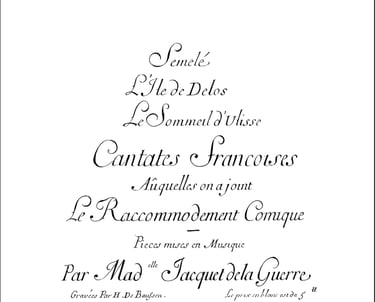 Semelé
L'Ile de Delos
Le Sommeil d'Ulisse
Cantates Francoises
Aûquelles on a joint
Le Raccommodement Comique
Pieces mises en Musique
Par Mad elle Jacquet de la Guerre
Gravées Par H. De Baussen.
Le prix en blanc est de 5 lt